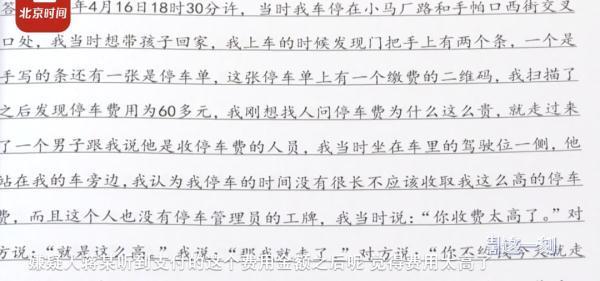 北京时间
答 年4月16日18时30分许，当时我车停在小马厂路和手帕口西街交叉
口处，我当时想带孩子回家，我上车的时候发现门把手上有两个条，一个是
手写的条还有一张是停车单，这张停车单上有一个缴费的二维码，我扫描了
之后发现停车费用为60多元，我刚想找人问停车费为什么这么贵，就走过来
了一个男子跟我说他是收停车费的人员，我当时坐在车里的驾驶位一侧，他
站在我的车旁边，我认为我停车的时间没有很长不应该收取我这么高的停车
费，而且这个人也没有停车管理员的工牌，我当时说：“你收费太高了。”对
方说：“就是这么高。”我说：“那我就走了。”对方说：“你不
嫌疑人蒋某听到支付的这个费用金额之后呢 觉得费用太高了